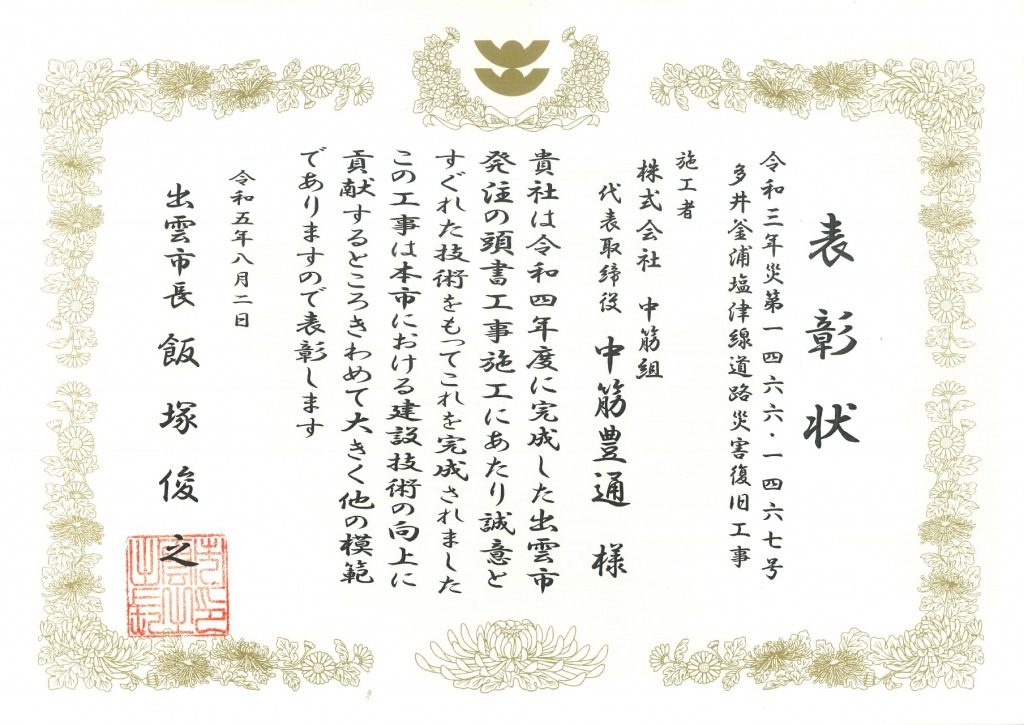 表彰状
令和三年災第一四六六・一四六七号
多井釜浦塩津線道路災害復旧工事
施工者
株式会社 中筋組
代表取締役 中筋豊通 様
貴社は令和四年度に完成した出雲市
発注の頭書工事施工にあたり誠意と
すぐれた技術をもってこれを完成されました
この工事は本市における建設技術の向上に
貢献するところきわめて大きく他の模範
でありますので表彰します
令和五年八月二日
出雲市長 飯塚俊之